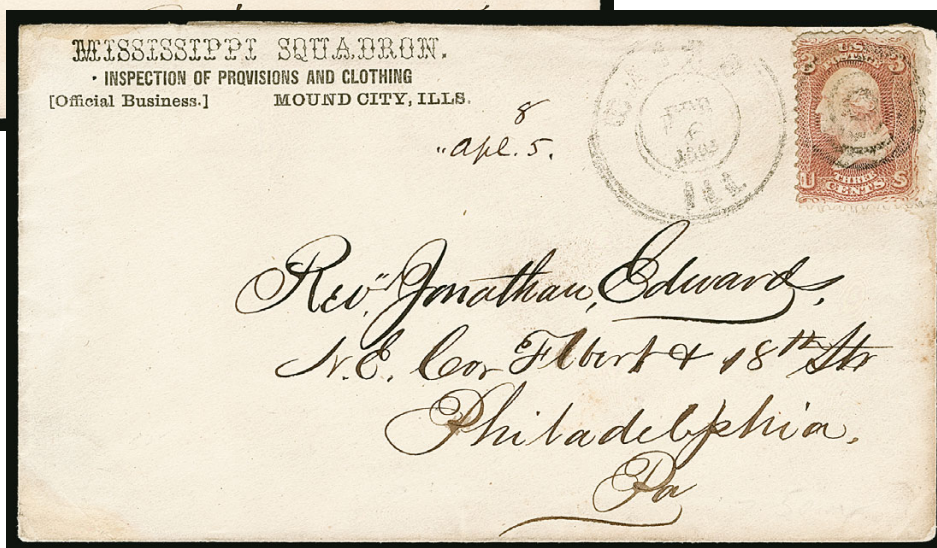 MISSISSIPPI SQUADRON.
· INSPECTION OF PROVISIONS AND CLOTHING
[Official Business.] MOUND CITY, ILLS.
8
"Apl. 5.
CAIRO
6
1865
ILL
U.S.
POSTAGE
3 3
THREE
U CENTS S
Rev" Jonathan, Edwards,
N.E. Cor Filbert & 18th Str
Philadelphia.
Pa